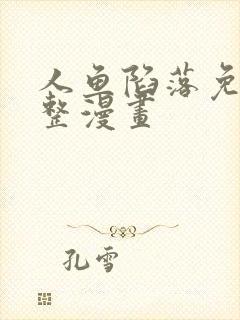 人鱼陷落免
整漫畫
孔雪